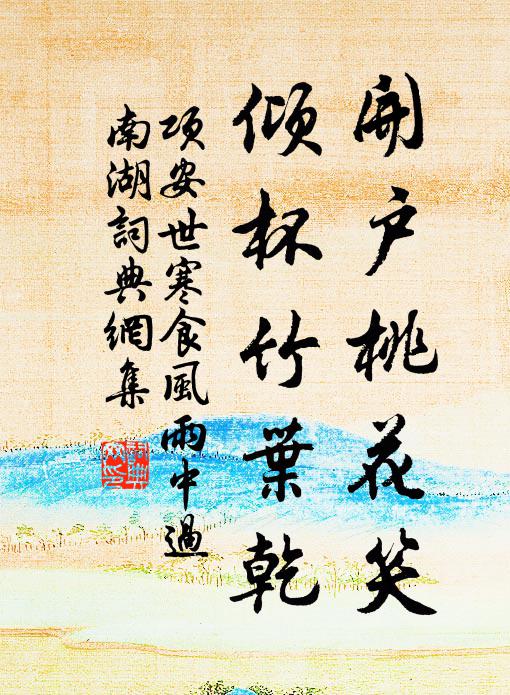 開户桃花笑
傾杯竹葉乾
項安世寒食風雨中過
南湖詞典網集